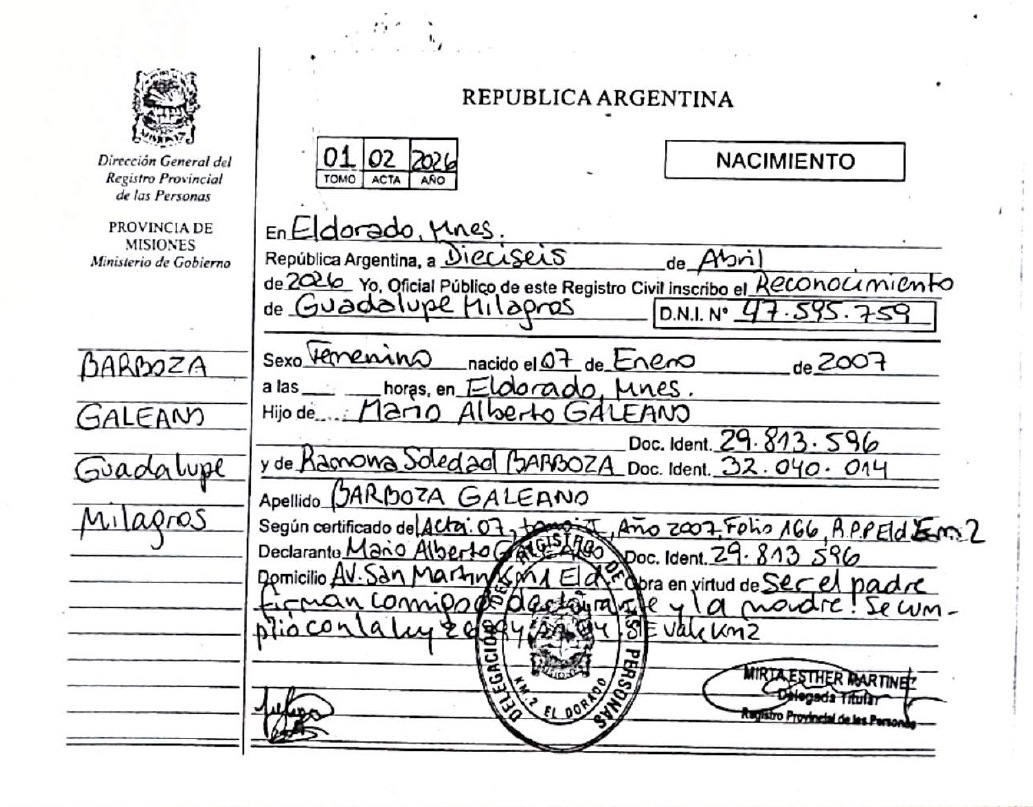 REPUBLICA ARGENTINA
Dirección General del
Registro Provincial
de las Personas
PROVINCIA DE
MISIONES
Ministerio de Gobierno
01 02 2026
TOMO ACTA AÑO
NACIMIENTO
En Eldorado, Mnes.
República Argentina, a Dieciseis de Abril
de 2026 Yo, Oficial Público de este Registro Civil inscribo el Reconocimiento
de Guadalupe Milagros D.N.I. N° 47.595.759
BARBOZA
GALEANO
Guadalupe
Milagros
Sexo Femenino nacido el 07 de Enero de 2007
a las horas, en Eldorado, Mnes.
Hijo de Mario Alberto GALEANO
Doc. Ident. 29.813.596
y de Ramona Soledad BARBOZA Doc. Ident. 32.040.014
Apellido BARBOZA GALEANO
Según certificado de Acta: 07, tomo I, Año 2007, Folio 166, R.P.P Eld Km. 2
Declarante Mario Alberto Doc. Ident. 29.813 596
Domicilio AV. San Martin Km 1 Eld. Obra en virtud de Ser el padre
firman conmigo y la madre! Se cum-
plio con la ley Vale Km2
DELEGACION DEL REGISTRO DE LAS PERSONAS
KM. 2 EL DORADO
MISIONES
MIRTA ESTHER MARTINEZ
Delegada Titular
Registro Provincial de las Personas